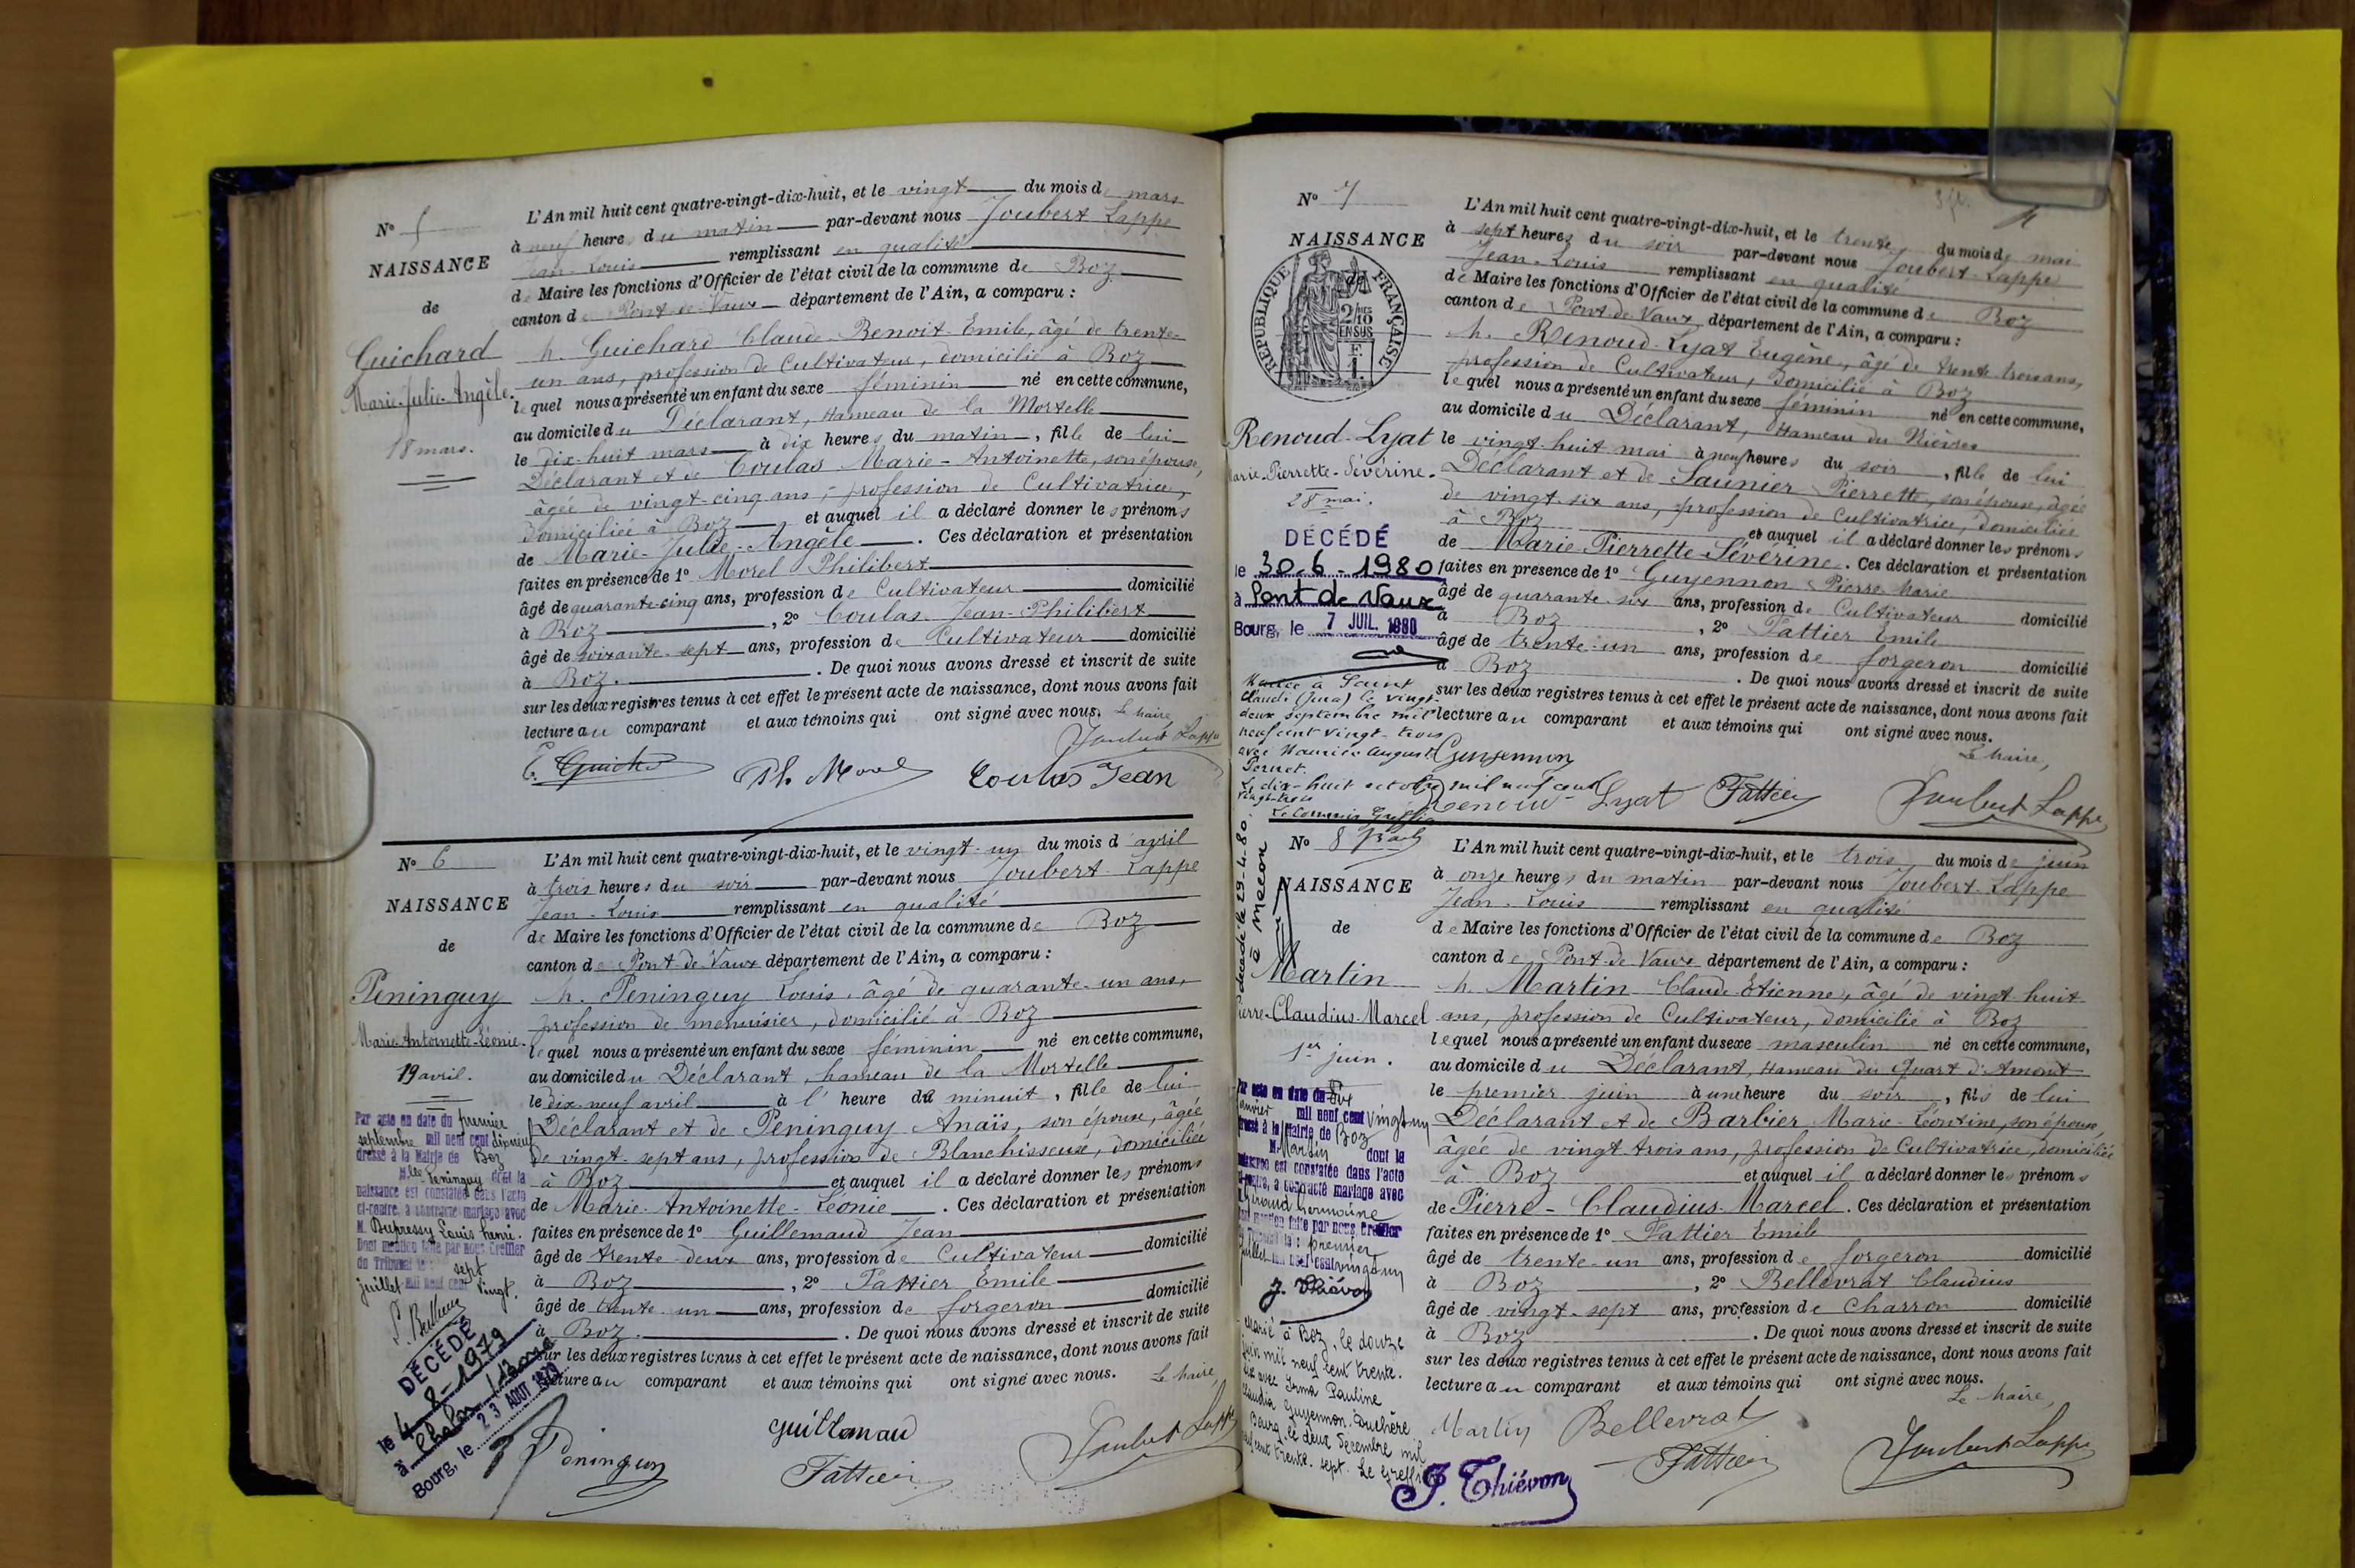 N° 5
NAISSANCE
de
Guichard
Marie-Julie-Angèle.
18 mars.
L'An mil huit cent quatre-vingt-dix-huit, et le vingt du mois de mars
à neuf heures du matin par-devant nous Joubert Lappe
Jean-Louis remplissant en qualité
de Maire les fonctions d'Officier de l'état civil de la commune de Boz
canton de Pont-de-Vaux département de l'Ain, a comparu :
M. Guichard Claude-Benoit-Emile, âgé de trente-
un ans, profession de Cultivateur, domicilié à Boz
lequel nous a présenté un enfant du sexe féminin né en cette commune,
au domicile du Déclarant, Hameau de la Mortelle
le dix-huit mars à dix heures du matin, fille de lui
Déclarant et de Coulas Marie-Antoinette, son épouse,
âgée de vingt-cinq ans, profession de Cultivatrice,
domiciliée à Boz et auquel il a déclaré donner les prénoms
de Marie-Julie-Angèle. Ces déclaration et présentation
faites en présence de 1° Morel Philibert
âgé de quarante-cinq ans, profession de Cultivateur domicilié
à Boz, 2° Coulas Jean-Philibert
âgé de soixante-sept ans, profession de Cultivateur domicilié
à Boz. De quoi nous avons dressé et inscrit de suite
sur les deux registres tenus à cet effet le présent acte de naissance, dont nous avons fait
lecture au comparant et aux témoins qui ont signé avec nous. Le Maire,
Joubert Lappe
Ph. Morel Coulas Jean
N° 6
NAISSANCE
de
Peninguy
Marie-Antoinette-Léonie.
19 avril.
Par acte en date du premier
septembre mil neuf cent dix neuf
dressé à la Mairie de Boz
Mlle Peninguy dont la
naissance est constatée dans l'acte
ci-contre, a contracté mariage avec
M. Dupressy Louis Henri.
Dont mention faite par nous Greffier
du Tribunal le: sept
juillet mil neuf cent vingt.
DÉCÉDÉ
le 4-8-1979
à
Bourg, le 23 AOUT 1979
L'An mil huit cent quatre-vingt-dix-huit, et le vingt-un du mois d'avril
à trois heures du soir par-devant nous Joubert-Lappe
Jean-Louis remplissant en qualité
de Maire les fonctions d'Officier de l'état civil de la commune de Boz
canton de Pont-de-Vaux département de l'Ain, a comparu :
M. Peninguy Louis, âgé de quarante-un ans,
profession de menuisier, domicilié à Boz
lequel nous a présenté un enfant du sexe féminin né en cette commune,
au domicile du Déclarant, hameau de la Mortelle
le dix-neuf avril à l'heure de minuit, fille de lui
Déclarant et de Peninguy Anaïs, son épouse, âgée
de vingt-sept ans, profession de Blanchisseuse, domiciliée
à Boz et auquel il a déclaré donner les prénoms
de Marie-Antoinette-Léonie. Ces déclaration et présentation
faites en présence de 1° Guillemaud Jean
âgé de trente-deux ans, profession de Cultivateur domicilié
à Boz, 2° Fattier Emile
âgé de trente-un ans, profession de forgeron domicilié
à Boz. De quoi nous avons dressé et inscrit de suite
sur les deux registres tenus à cet effet le présent acte de naissance, dont nous avons fait
lecture au comparant et aux témoins qui ont signé avec nous. Le Maire,
Peninguy Guillemau Fattier Joubert Lappe
N° 7
NAISSANCE
de
RÉPUBLIQUE FRANÇAISE
2/10
EN SUS
Renoud-Lyat
Marie-Pierrette-Séverine.
28 mai.
DÉCÉDÉ
le 30-6-1980
à Pont de Vaux
Bourg, le 7 JUIL. 1980
Mariée à Saint
Claude (Jura) le vingt
deux septembre mil
neuf cent vingt-trois
avec Maurice August
Pernet.
Le dix-huit octobre mil neuf cent
vingt-trois
Le Commis Greffier
L'An mil huit cent quatre-vingt-dix-huit, et le trente du mois de mai
à sept heures du soir par-devant nous Joubert-Lappe
Jean-Louis remplissant en qualité
de Maire les fonctions d'Officier de l'état civil de la commune de Boz
canton de Pont-de-Vaux département de l'Ain, a comparu :
M. Renoud-Lyat Eugène, âgé de trente-trois ans,
profession de Cultivateur, domicilié à Boz
lequel nous a présenté un enfant du sexe féminin né en cette commune,
au domicile du Déclarant, Hameau du
le vingt-huit mai à neuf heures du soir, fille de lui
Déclarant et de Saunier Pierrette, son épouse, âgée
de vingt-six ans, profession de Cultivatrice, domiciliée
à Boz et auquel il a déclaré donner les prénoms
de Marie-Pierrette-Séverine. Ces déclaration et présentation
faites en présence de 1° Guyennon Pierre Marie
âgé de quarante-six ans, profession de Cultivateur domicilié
à Boz, 2° Fattier Emile
âgé de trente-un ans, profession de forgeron domicilié
à Boz. De quoi nous avons dressé et inscrit de suite
sur les deux registres tenus à cet effet le présent acte de naissance, dont nous avons fait
lecture au comparant et aux témoins qui ont signé avec nous.
Le Maire,
Guyennon Renoud-Lyat Fattier Joubert Lappe
N° 8
NAISSANCE
de
Martin
Pierre-Claudius-Marcel
1er juin.
décédé le 29-4-80
à Macon
janvier mil neuf cent vingt un
dressé à la Mairie de Boz
M. Martin dont la
naissance est constatée dans l'acte
ci-contre, a contracté mariage avec
Dont mention faite par nous Greffier
du Tribunal le: premier
juillet mil neuf cent vingt un
J. Thiévon
Marié à Boz, le douze
juin mil neuf cent trente.
six avec Irma Pauline
Claudia Guyennon. Duchère
Bourg, le deux Décembre mil
neuf cent trente. sept. Le Greffier
J. Thiévon
L'An mil huit cent quatre-vingt-dix-huit, et le trois du mois de juin
à onze heures du matin par-devant nous Joubert-Lappe
Jean-Louis remplissant en qualité
de Maire les fonctions d'Officier de l'état civil de la commune de Boz
canton de Pont-de-Vaux département de l'Ain, a comparu :
M. Martin Claude Etienne, âgé de vingt-huit
ans, profession de Cultivateur, domicilié à Boz
lequel nous a présenté un enfant du sexe masculin né en cette commune,
au domicile du Déclarant, Hameau du Quart d'Amont
le premier juin à une heure du soir, fils de lui
Déclarant et de Barbier Marie-Léontine, son épouse,
âgée de vingt-trois ans, profession de Cultivatrice, domiciliée
à Boz et auquel il a déclaré donner les prénoms
de Pierre-Claudius-Marcel. Ces déclaration et présentation
faites en présence de 1° Fattier Emile
âgé de trente-un ans, profession de forgeron domicilié
à Boz, 2° Bellevrat Claudius
âgé de vingt-sept ans, profession de Charron domicilié
à Boz. De quoi nous avons dressé et inscrit de suite
sur les deux registres tenus à cet effet le présent acte de naissance, dont nous avons fait
lecture au comparant et aux témoins qui ont signé avec nous.
Le Maire,
Martin Bellevrat Fattier Joubert Lappe